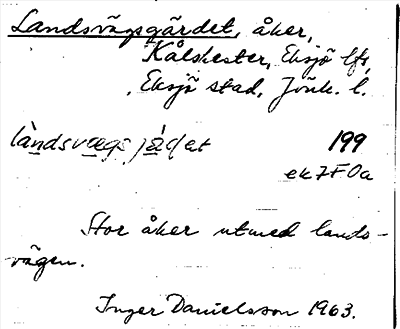 Landsvägsgärdet, åker,
Kålskester, Eksjö lfs,
Eksjö stad, Jönk. l.
199
ek7F0a
Stor åker utmed lands-
vägen.
Inger Danielsson 1963.